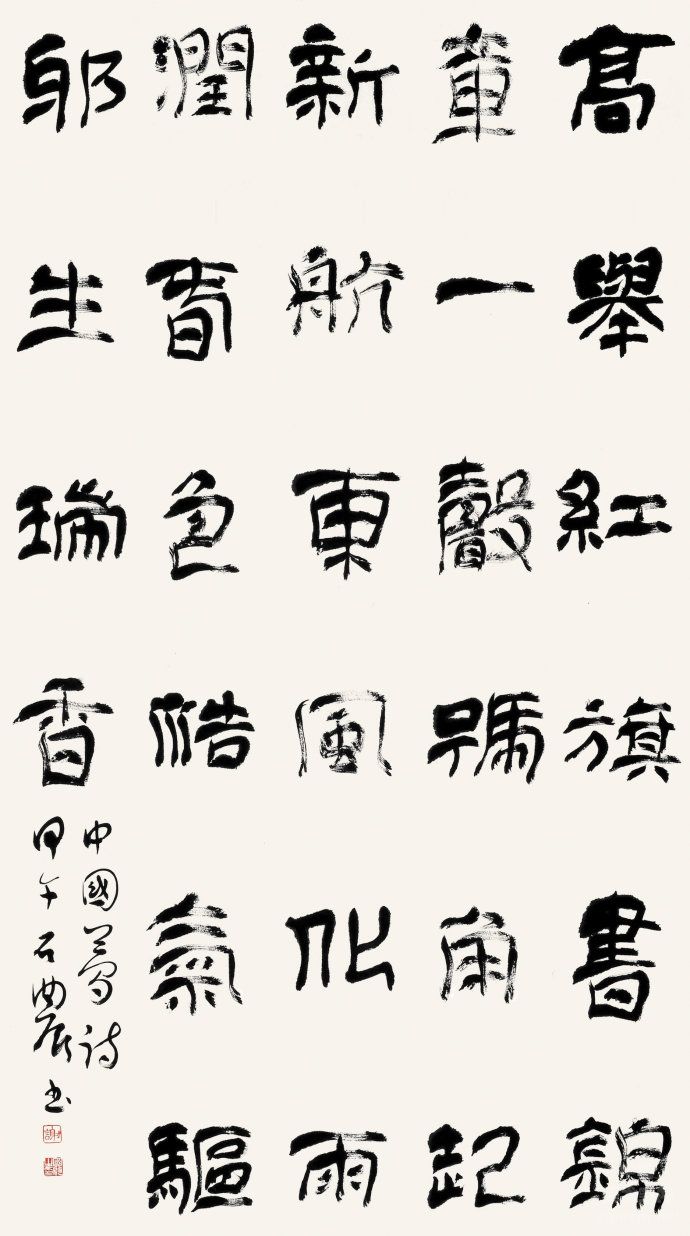 高舉紅旗書錦
章一聲號角起
新航東風化雨
潤春色浩氣驅
邪生瑞香
中國夢詩
甲午石曲辰书